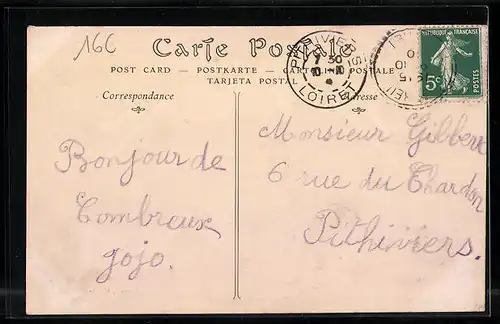 16C
Carte Postale
POST CARD — POSTKARTE — CARTOLINA POSTALE
TARJETA POSTAL
Correspondance
Adresse
PITHIVIERS
7 30
10 - 10
LOIRET
REPUBLIQUE FRANÇAISE
5c
POSTES
Bonjour de
Combreux
Jojo.
Monsieur Gilbert
6 rue du Chardon
Pithiviers.